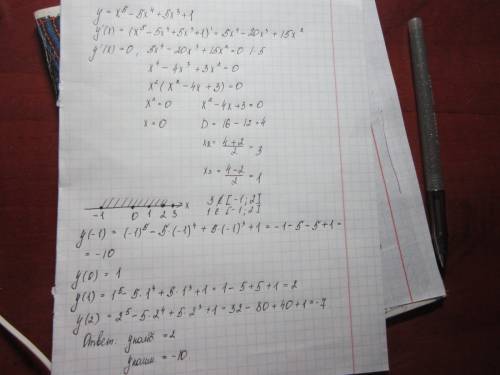 y = x⁵ - 5x⁴ + 5x³ + 1
y'(x) = (x⁵ - 5x⁴ + 5x³ + 1)' = 5x⁴ - 20x³ + 15x²
y'(x) = 0, 5x⁴ - 20x³ + 15x² = 0 | : 5
x⁴ - 4x³ + 3x² = 0
x² (x² - 4x + 3) = 0
x² = 0 x² - 4x + 3 = 0
x = 0 D = 16 - 12 = 4
x₁ = (4+2)/2 = 3
x₂ = (4-2)/2 = 1
-1 0 1 2 3 x
3 ∉ [-1; 2]
1 ∈ [-1; 2]
y(-1) = (-1)⁵ - 5·(-1)⁴ + 5·(-1)³ + 1 = -1 - 5 - 5 + 1 =
= -10
y(0) = 1
y(1) = 1⁵ - 5·1⁴ + 5·1³ + 1 = 1 - 5 + 5 + 1 = 2
y(2) = 2⁵ - 5·2⁴ + 5·2³ + 1 = 32 - 80 + 40 + 1 = -7
Ответ: yнаиб = 2
yнаим = -10